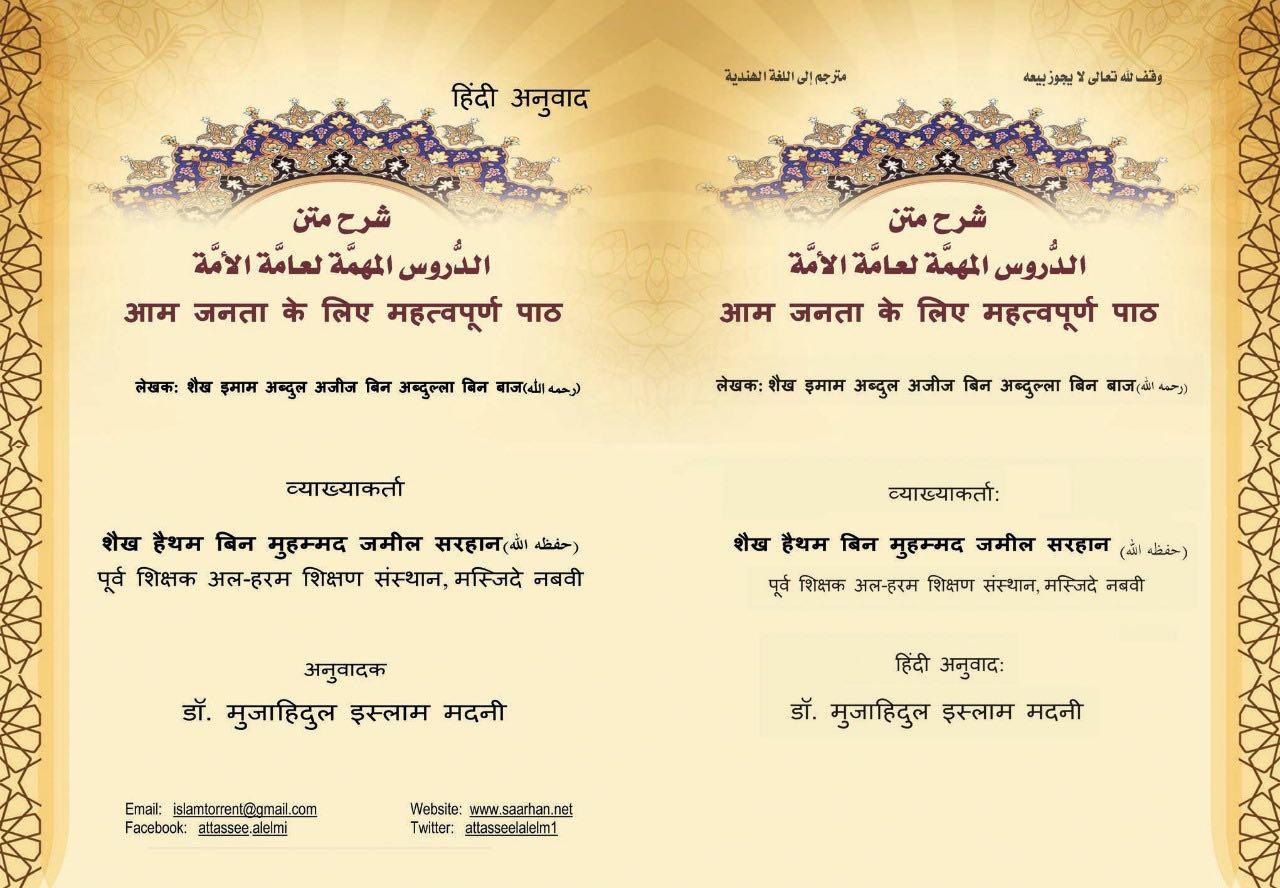 हिंदी अनुवाद
شرح متن
الدُّروس المهمَّة لعامَّة الأمَّة
आम जनता के लिए महत्वपूर्ण पाठ
लेखक: शैख इमाम अब्दुल अजीज बिन अब्दुल्ला बिन बाज(رحمه الله)
व्याख्याकर्ता
शैख हैथम बिन मुहम्मद जमील सरहान(حفظه الله)
पूर्व शिक्षक अल-हरम शिक्षण संस्थान, मस्जिदे नबवी
अनुवादक
डॉ. मुजाहिदुल इस्लाम मदनी
Email: islamtorrent@gmail.com Website: www.saarhan.net
Facebook: attassee.alelmi Twitter: attasseelalelm1
وقف لله تعالى لا يجوز بيعه مترجم إلى اللغة الهندية
شرح متن
الدُّروس المهمَّة لعامَّة الأمَّة
आम जनता के लिए महत्वपूर्ण पाठ
लेखक: शैख इमाम अब्दुल अजीज बिन अब्दुल्ला बिन बाज(رحمه الله)
व्याख्याकर्ता:
शैख हैथम बिन मुहम्मद जमील सरहान (حفظه الله)
पूर्व शिक्षक अल-हरम शिक्षण संस्थान, मस्जिदे नबवी
हिंदी अनुवाद:
डॉ. मुजाहिदुल इस्लाम मदनी